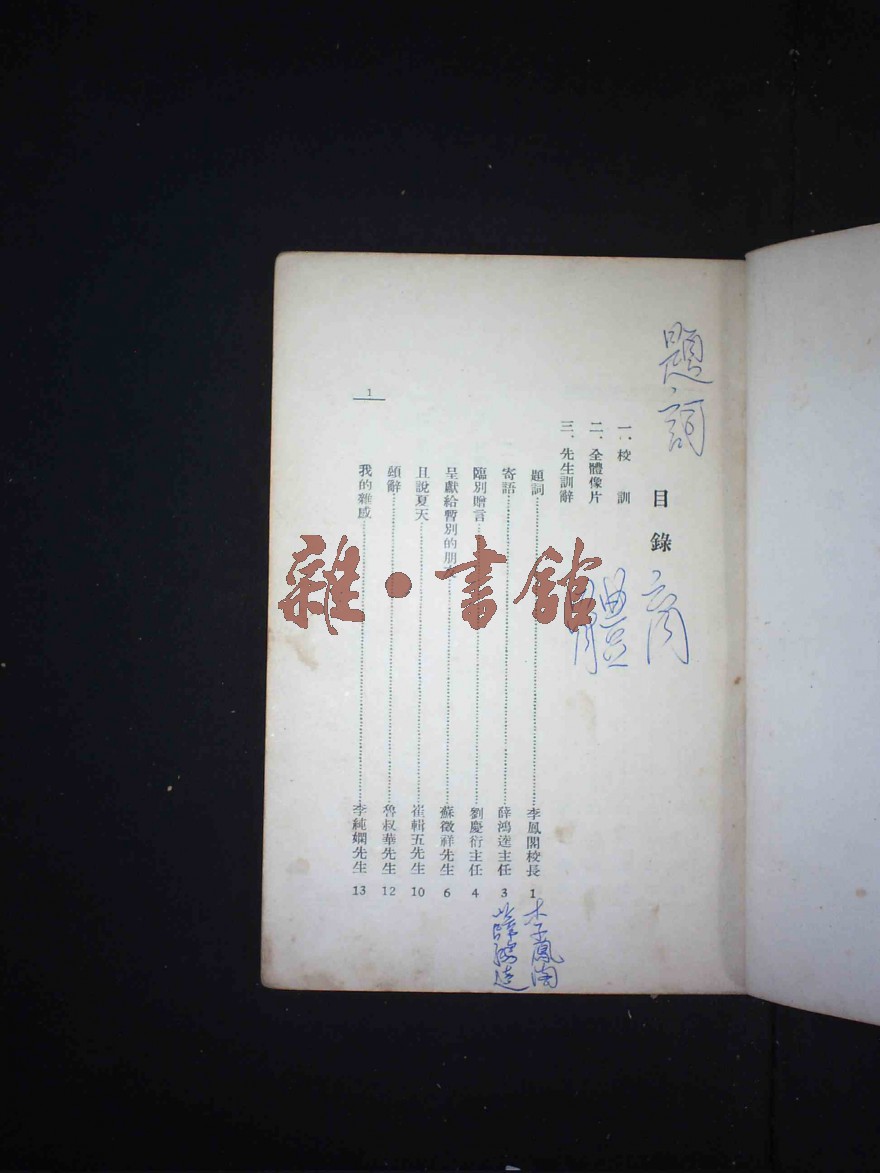 題詞
目錄
體育
一、校 訓
二、全體像片
三、先生訓辭
題詞……李鳳閣校長 1
寄語……薛鴻逵主任 3
臨別贈言……劉慶衍主任 4
呈獻給暫別的朋友……蘇徵祥先生 6
且說夏天……崔輯五先生 10
頭辭……魯叔華先生 12
我的雜感……李純嫻先生 13
李鳳閣
1
雜·書館